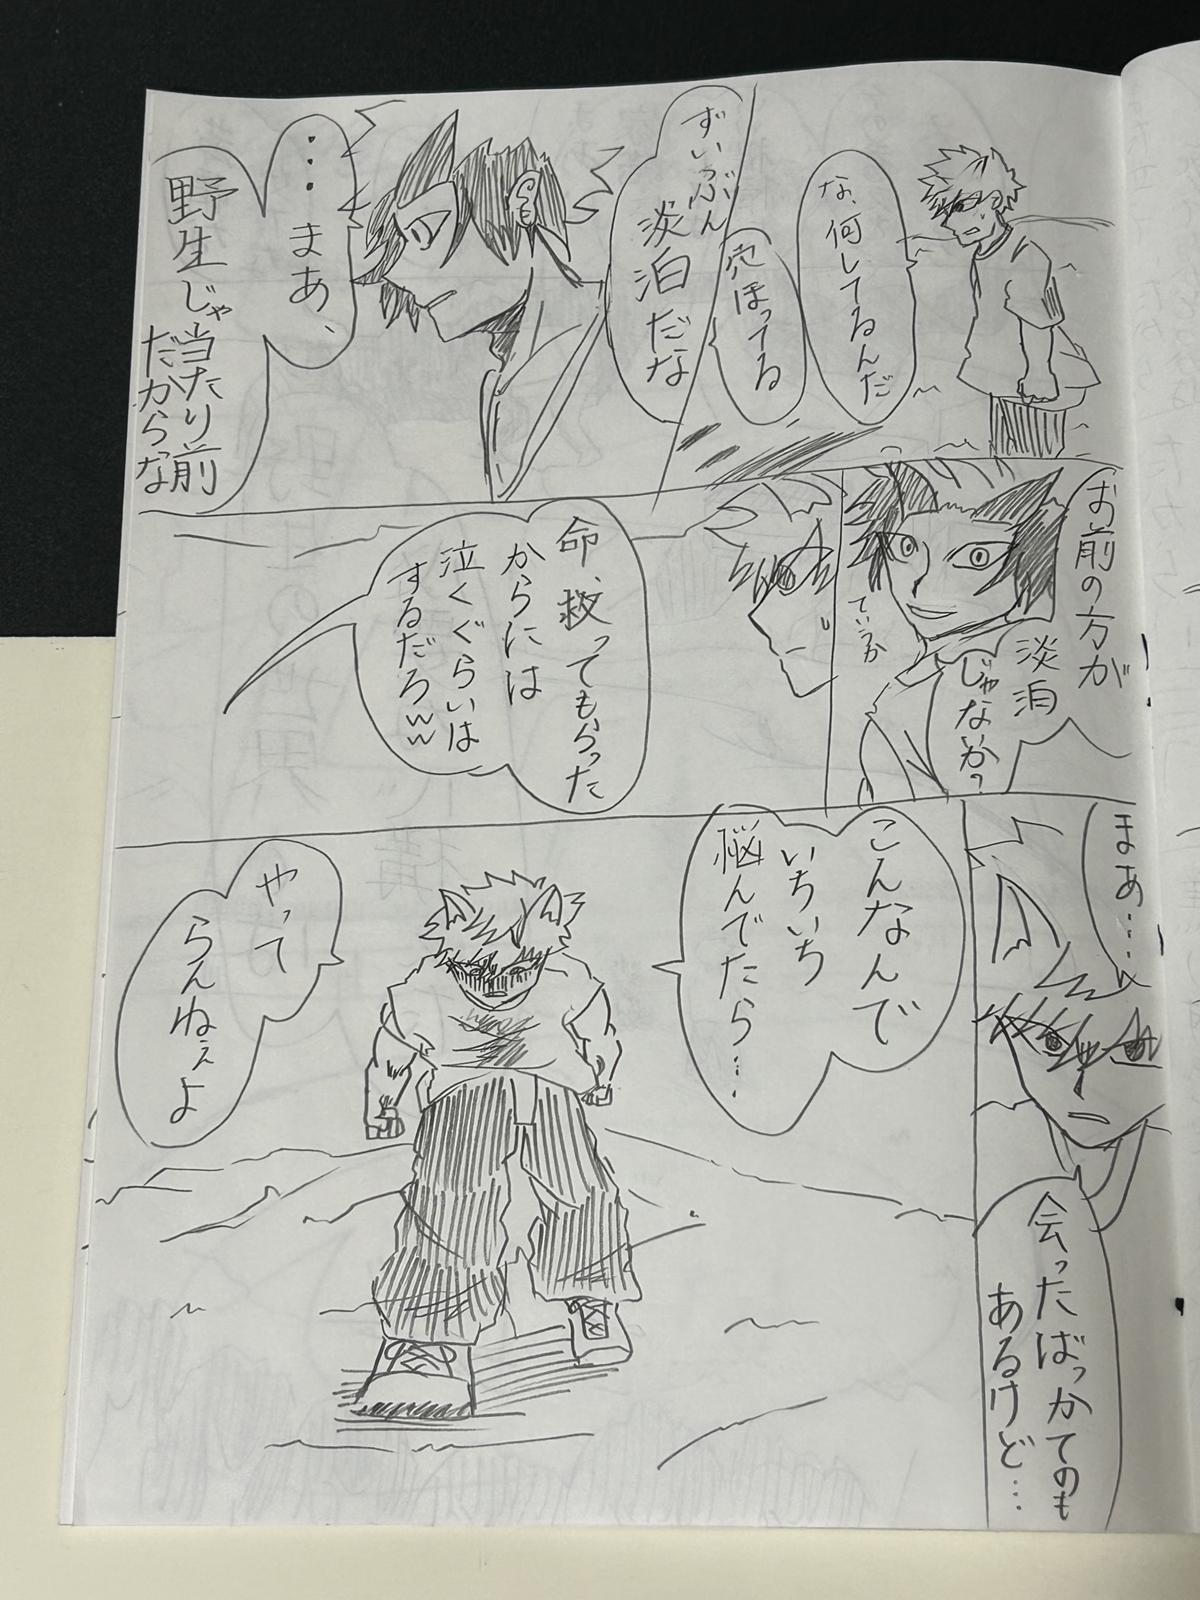 な、何してるんだ
穴ほってる
ずいぶん
淡泊だな
・・・まあ、
野生じゃ当たり前
だからな
お前の方が
淡泊
じゃなか?
ていうか
命、救ってもらった
からには
泣くぐらいは
するだろww
まあ・・・
会ったばっかてのも
あるけど・・・
こんなんで
いちいち
悩んでたら・・・
やって
らんねぇよ